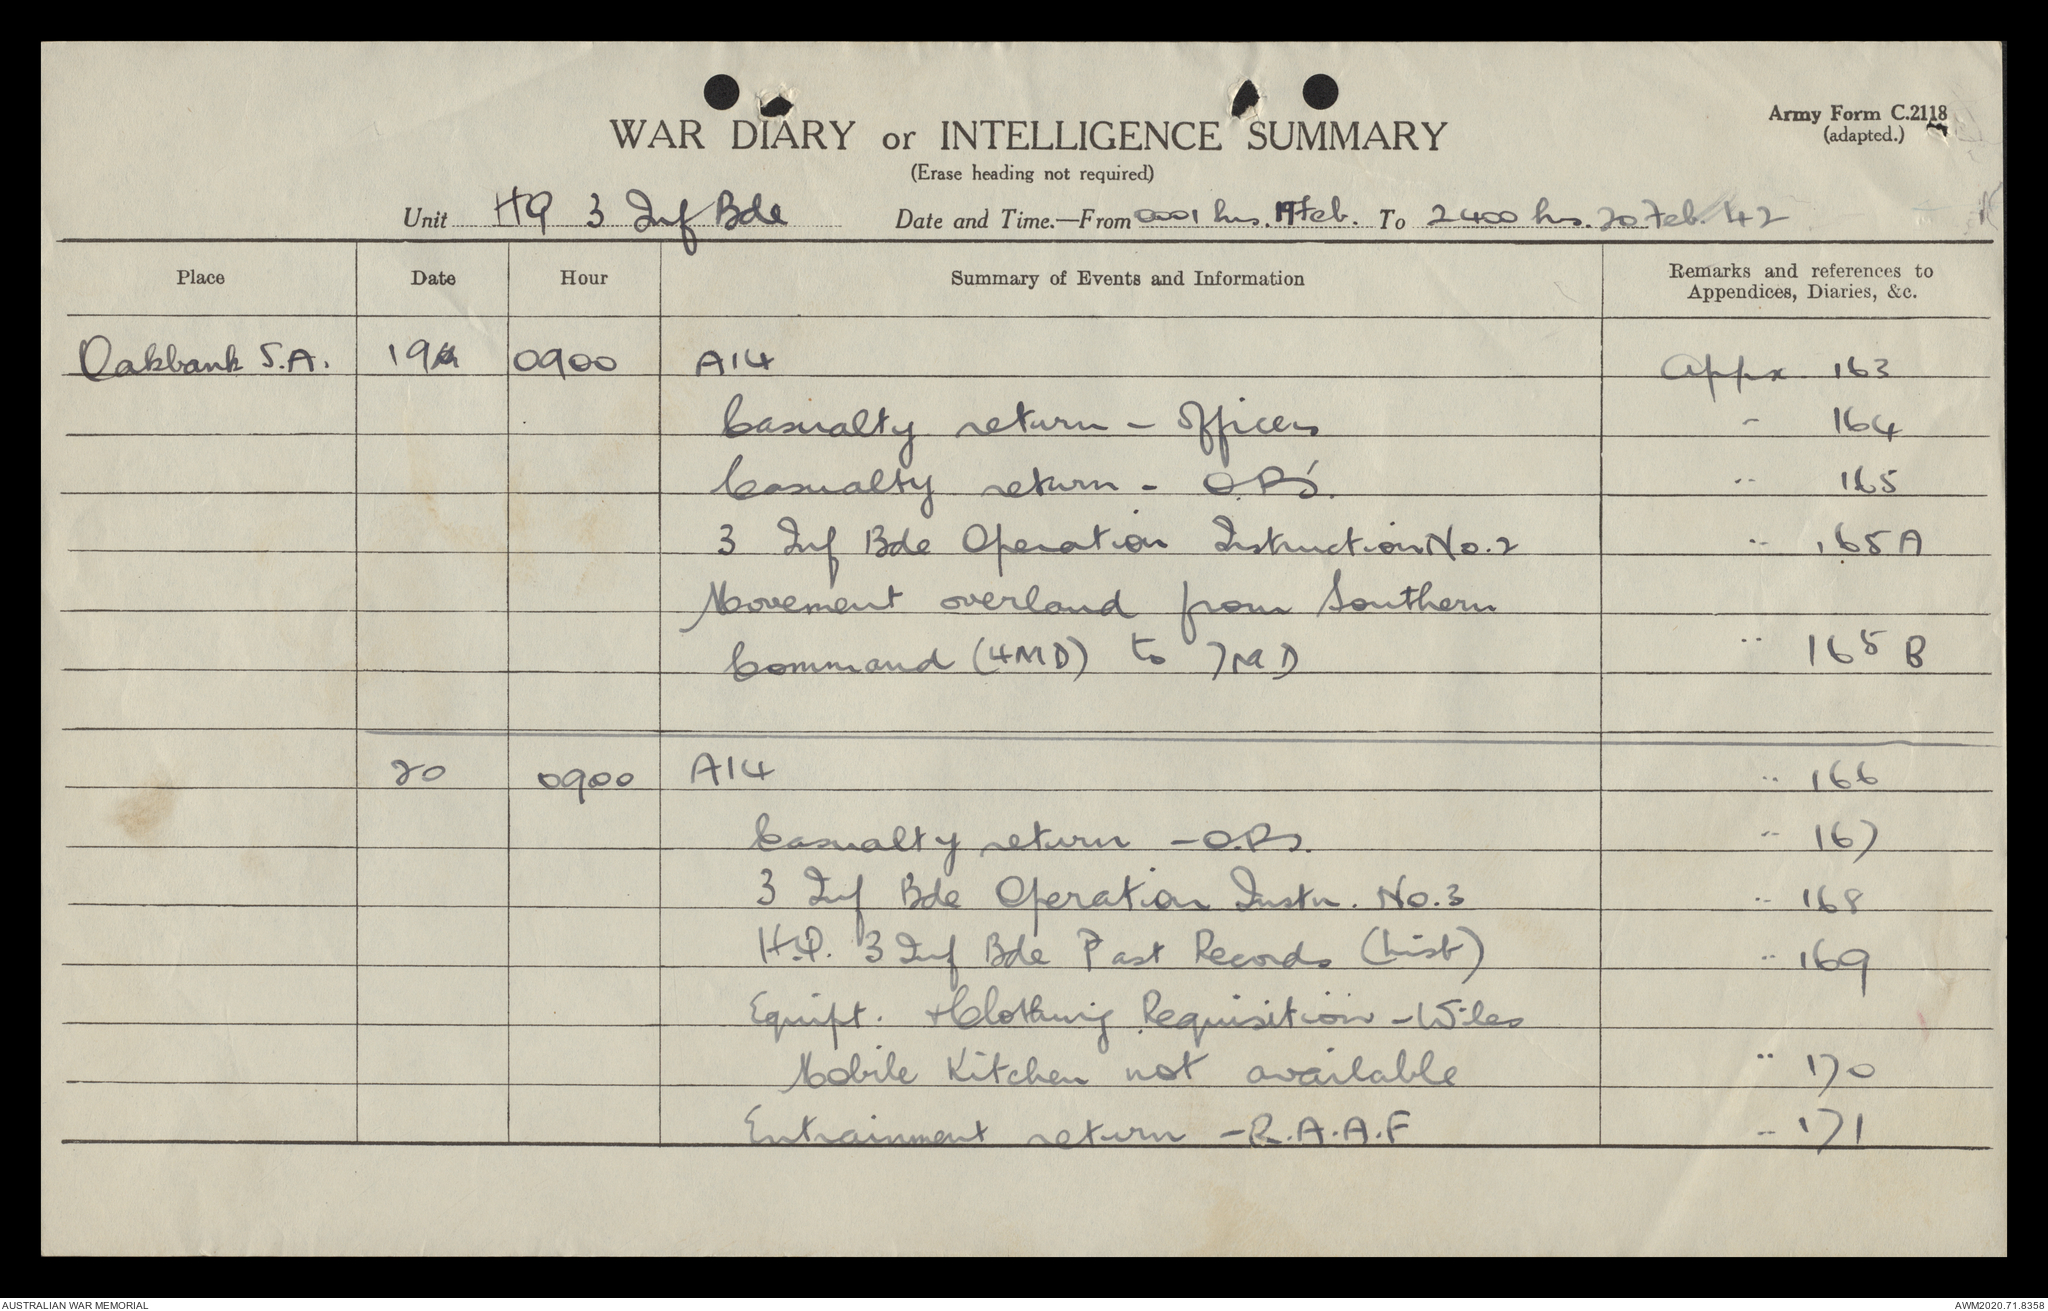 WAR DIARY or INTELLIGENCE SUMMARY
(Erase heading not required)
Army Form C.2118
(adapted.)
Unit HQ 3 Inf Bde Date and Time.—From 0001 hrs. 19 Feb. To 2400 hrs. 20 Feb. 42
Place Date Hour Summary of Events and Information Remarks and references to
Appendices, Diaries, &c.
Oakbank S.A. 19th 0900 A14 Appx 163
Casualty return - Officers " 164
Casualty return - O.R's. " 165
3 Inf Bde Operation Instruction No. 2 " 165A
Movement overland from Southern
Command (4MD) to 7MD " 165 B
20 0900 A14 " 166
Casualty return - O.Rs. " 167
3 Inf Bde Operation Instn. No. 3 " 168
H.Q. 3 Inf Bde Past Records (List) " 169
Equipt. + Clothing Requisition - Wiles
Mobile Kitchen not available " 170
Entrainment return - R.A.A.F " 171
AUSTRALIAN WAR MEMORIAL
AWM2020.71.8358